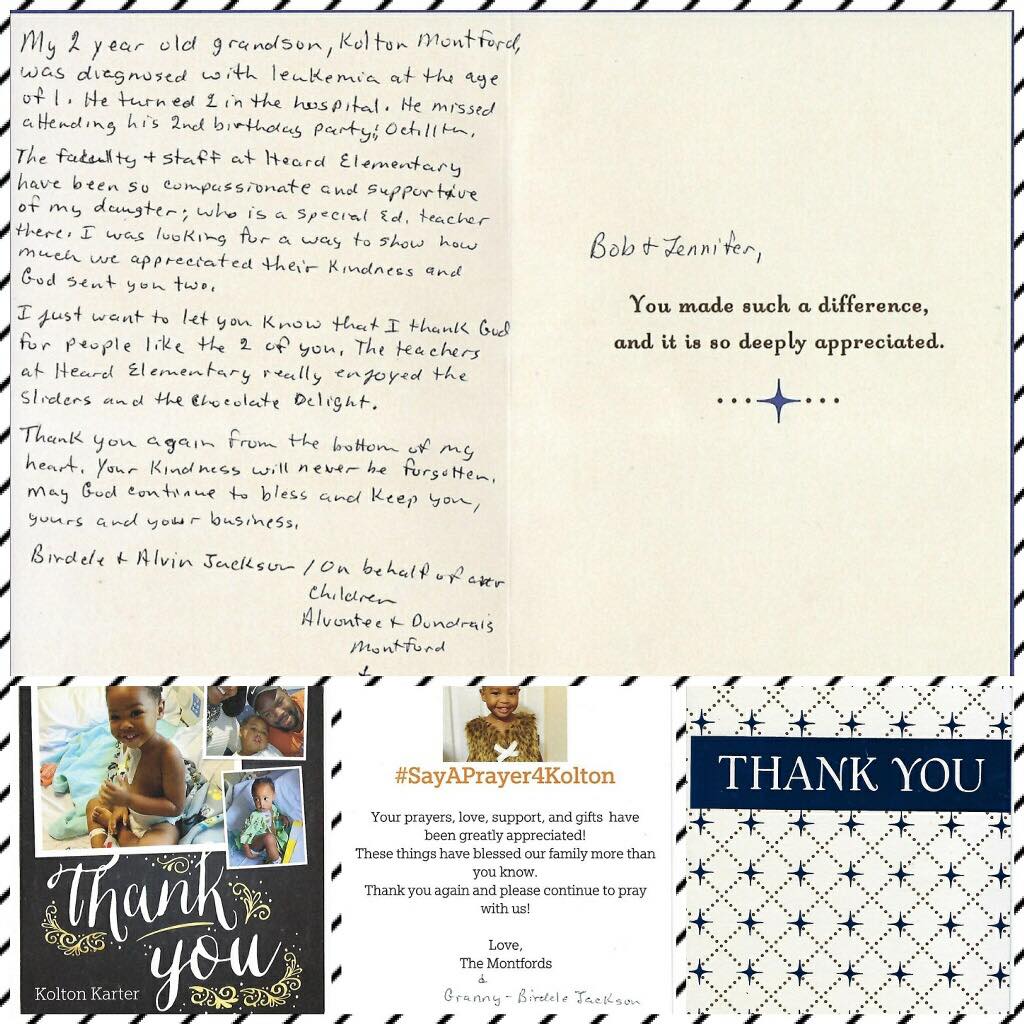 My 2 year old grandson, Kolton Montford,
was diagnosed with leukemia at the age
of 1. He turned 2 in the hospital. He missed
attending his 2nd birthday party;
The faculty + staff at Heard Elementary
have been so compassionate and supportive
of my daugter; who is a special Ed. teacher
there. I was looking for a way to show how
much we appreciated their kindness and
God sent you two.
I just want to let you know that I thank God
for people like the 2 of you. The teachers
at Heard Elementary really enjoyed the
Sliders and the Chocolate Delight.
Thank you again from the bottom of my
heart. Your kindness will never be forgotten.
May God continue to bless and keep you,
yours and your business.
Birdele + Alvin Jackson / On behalf of our
children
Alvontee + Dundrais
Montford
+
Bob + Jennifer,
You made such a difference,
and it is so deeply appreciated.
Thank
you
Kolton Karter
#SayAPrayer4Kolton
Your prayers, love, support, and gifts have
been greatly appreciated!
These things have blessed our family more than
you know.
Thank you again and please continue to pray
with us!
Love,
The Montfords
&
Granny - Birdele Jackson
THANK YOU